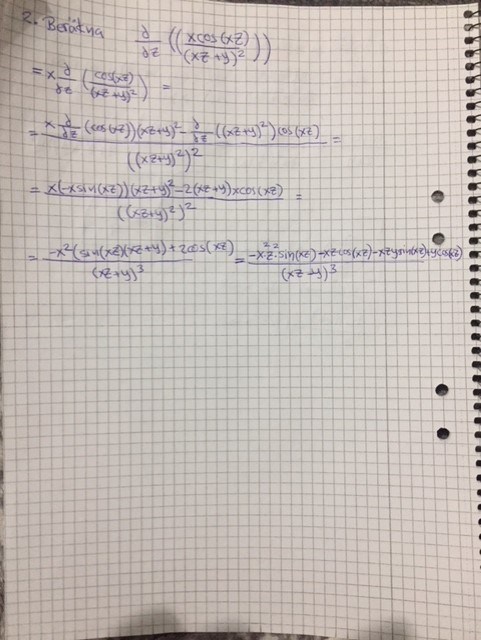 2. Beräkna ∂/∂z ((xcos(xz)/(xz+y)²))
= x ∂/∂z (cos(xz)/(xz+y)²) =
= x ∂/∂z (cos(xz))(xz+y)² - ∂/∂z ((xz+y)²)cos(xz) / ((xz+y)²)² =
= x(-xsin(xz))(xz+y)² - 2(xz+y)xcos(xz) / ((xz+y)²)² =
= -x²(sin(xz)(xz+y)+2cos(xz) / (xz+y)³ = -x²z²·sin(xz)-xzcos(xz)-xzysin(xz)+ycos(xz) / (xz+y)³